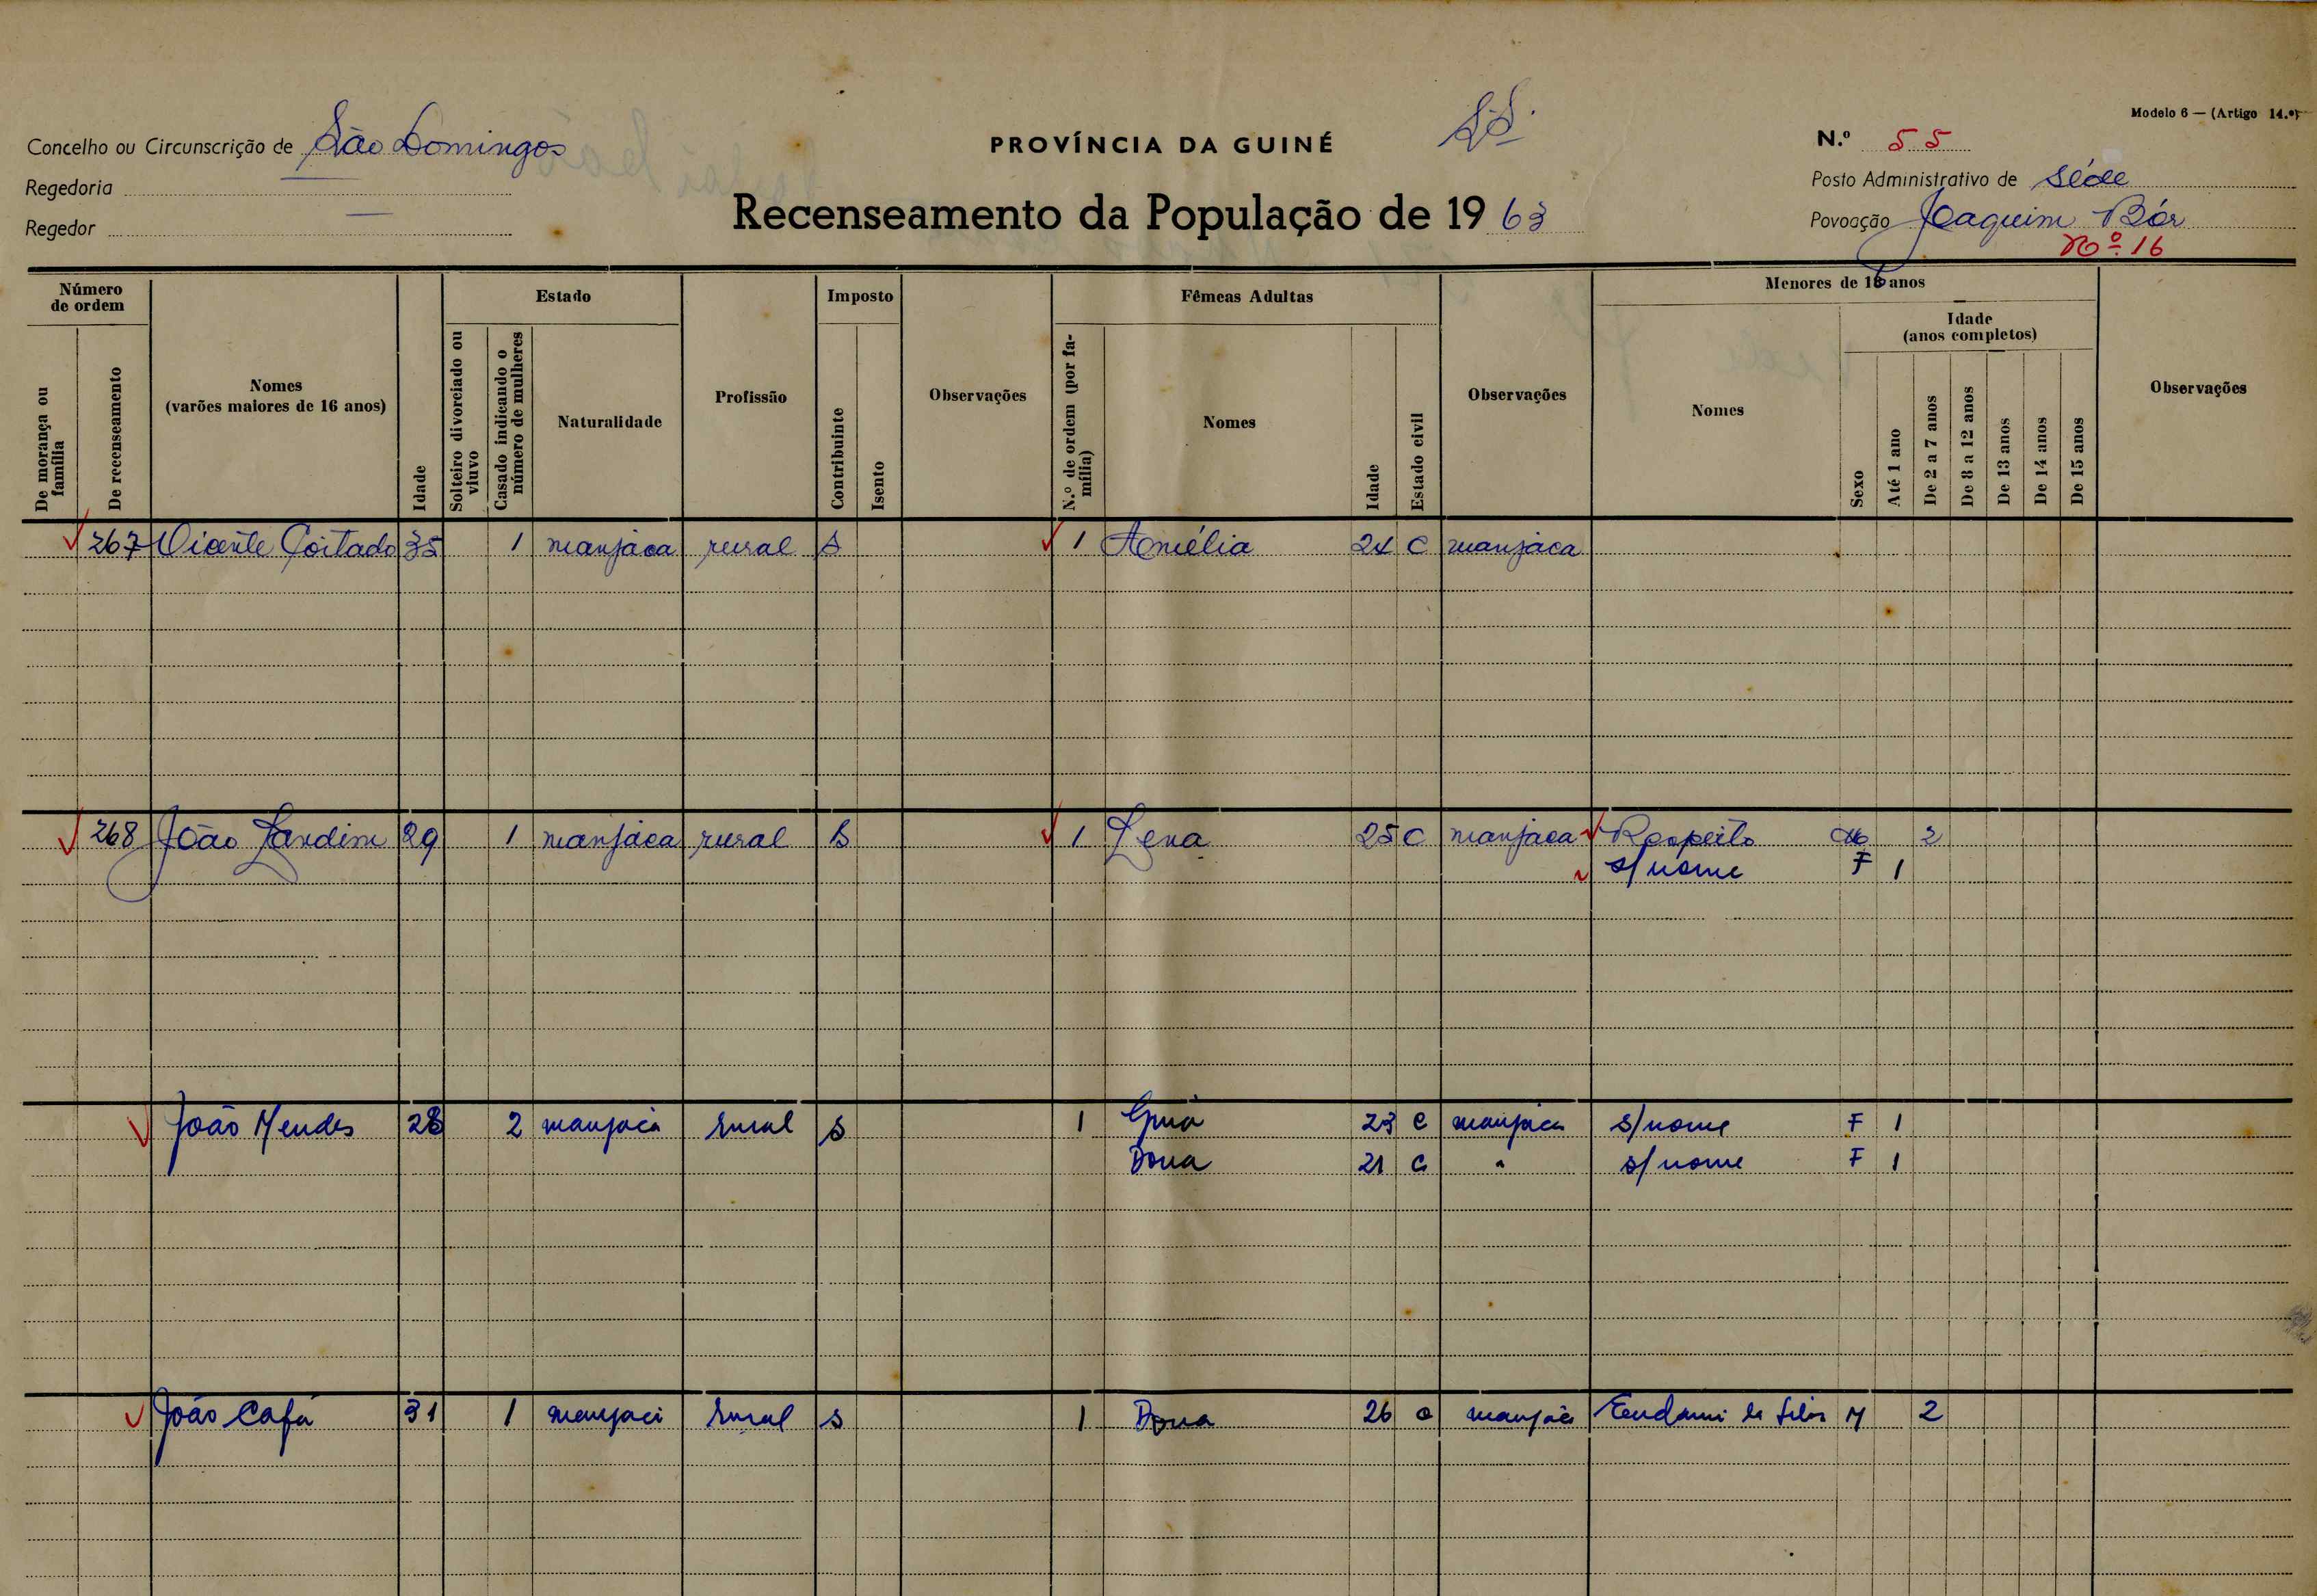 Modelo 6 — (Artigo 14.º)
Concelho ou Circunscrição de São Domingos
PROVÍNCIA DA GUINÉ
N.º 55
Regedoria —
Posto Administrativo de Séde
Regedor —
Recenseamento da População de 1963
Povoação Joaquim Bór
Nº 16
Número de ordem
De morança ou família
De recenseamento
Nomes
(varões maiores de 16 anos)
Idade
Estado
Solteiro divorciado ou viuvo
Casado indicando o número de mulheres
Naturalidade
Profissão
Imposto
Contribuinte
Isento
Observações
Fêmeas Adultas
N.º de ordem (por família)
Nomes
Idade
Estado civil
Observações
Menores de 16 anos
Nomes
Sexo
Idade
(anos completos)
Até 1 ano
De 2 a 7 anos
De 8 a 12 anos
De 13 anos
De 14 anos
De 15 anos
Observações
267 Vicente Coitado 35 1 manjaca rural S 1 Amélia 24 C manjaca
268 João Jandim 29 1 manjaca rural S 1 Lena 25 C manjaca Respeito M 2
s/nome F 1
João Mendes 28 2 manjaca rural S 1 23 C manjaca s/nome F 1
Dona 21 C " s/nome F 1
João Cafá 31 1 manjaca rural S 1 Dona 26 C manjaca da Silva M 2